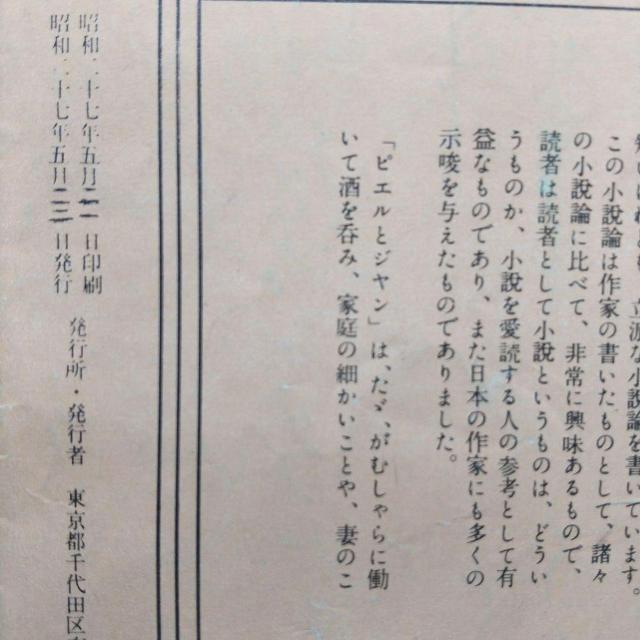 立派な小説論を書いています。
この小説論は作家の書いたものとして、諸々
の小説論に比べて、非常に興味あるもので、
読者は読者として小説というものは、どうい
うものか、小説を愛読する人の参考として有
益なものであり、また日本の作家にも多くの
示唆を与えたものでありました。
「ピエルとジャン」は、たゞ、がむしゃらに働
いて酒を呑み、家庭の細かいことや、妻のこ
昭和二十七年五月二十一日印刷
昭和二十七年五月二十二日発行
発行所・発行者 東京都千代田区